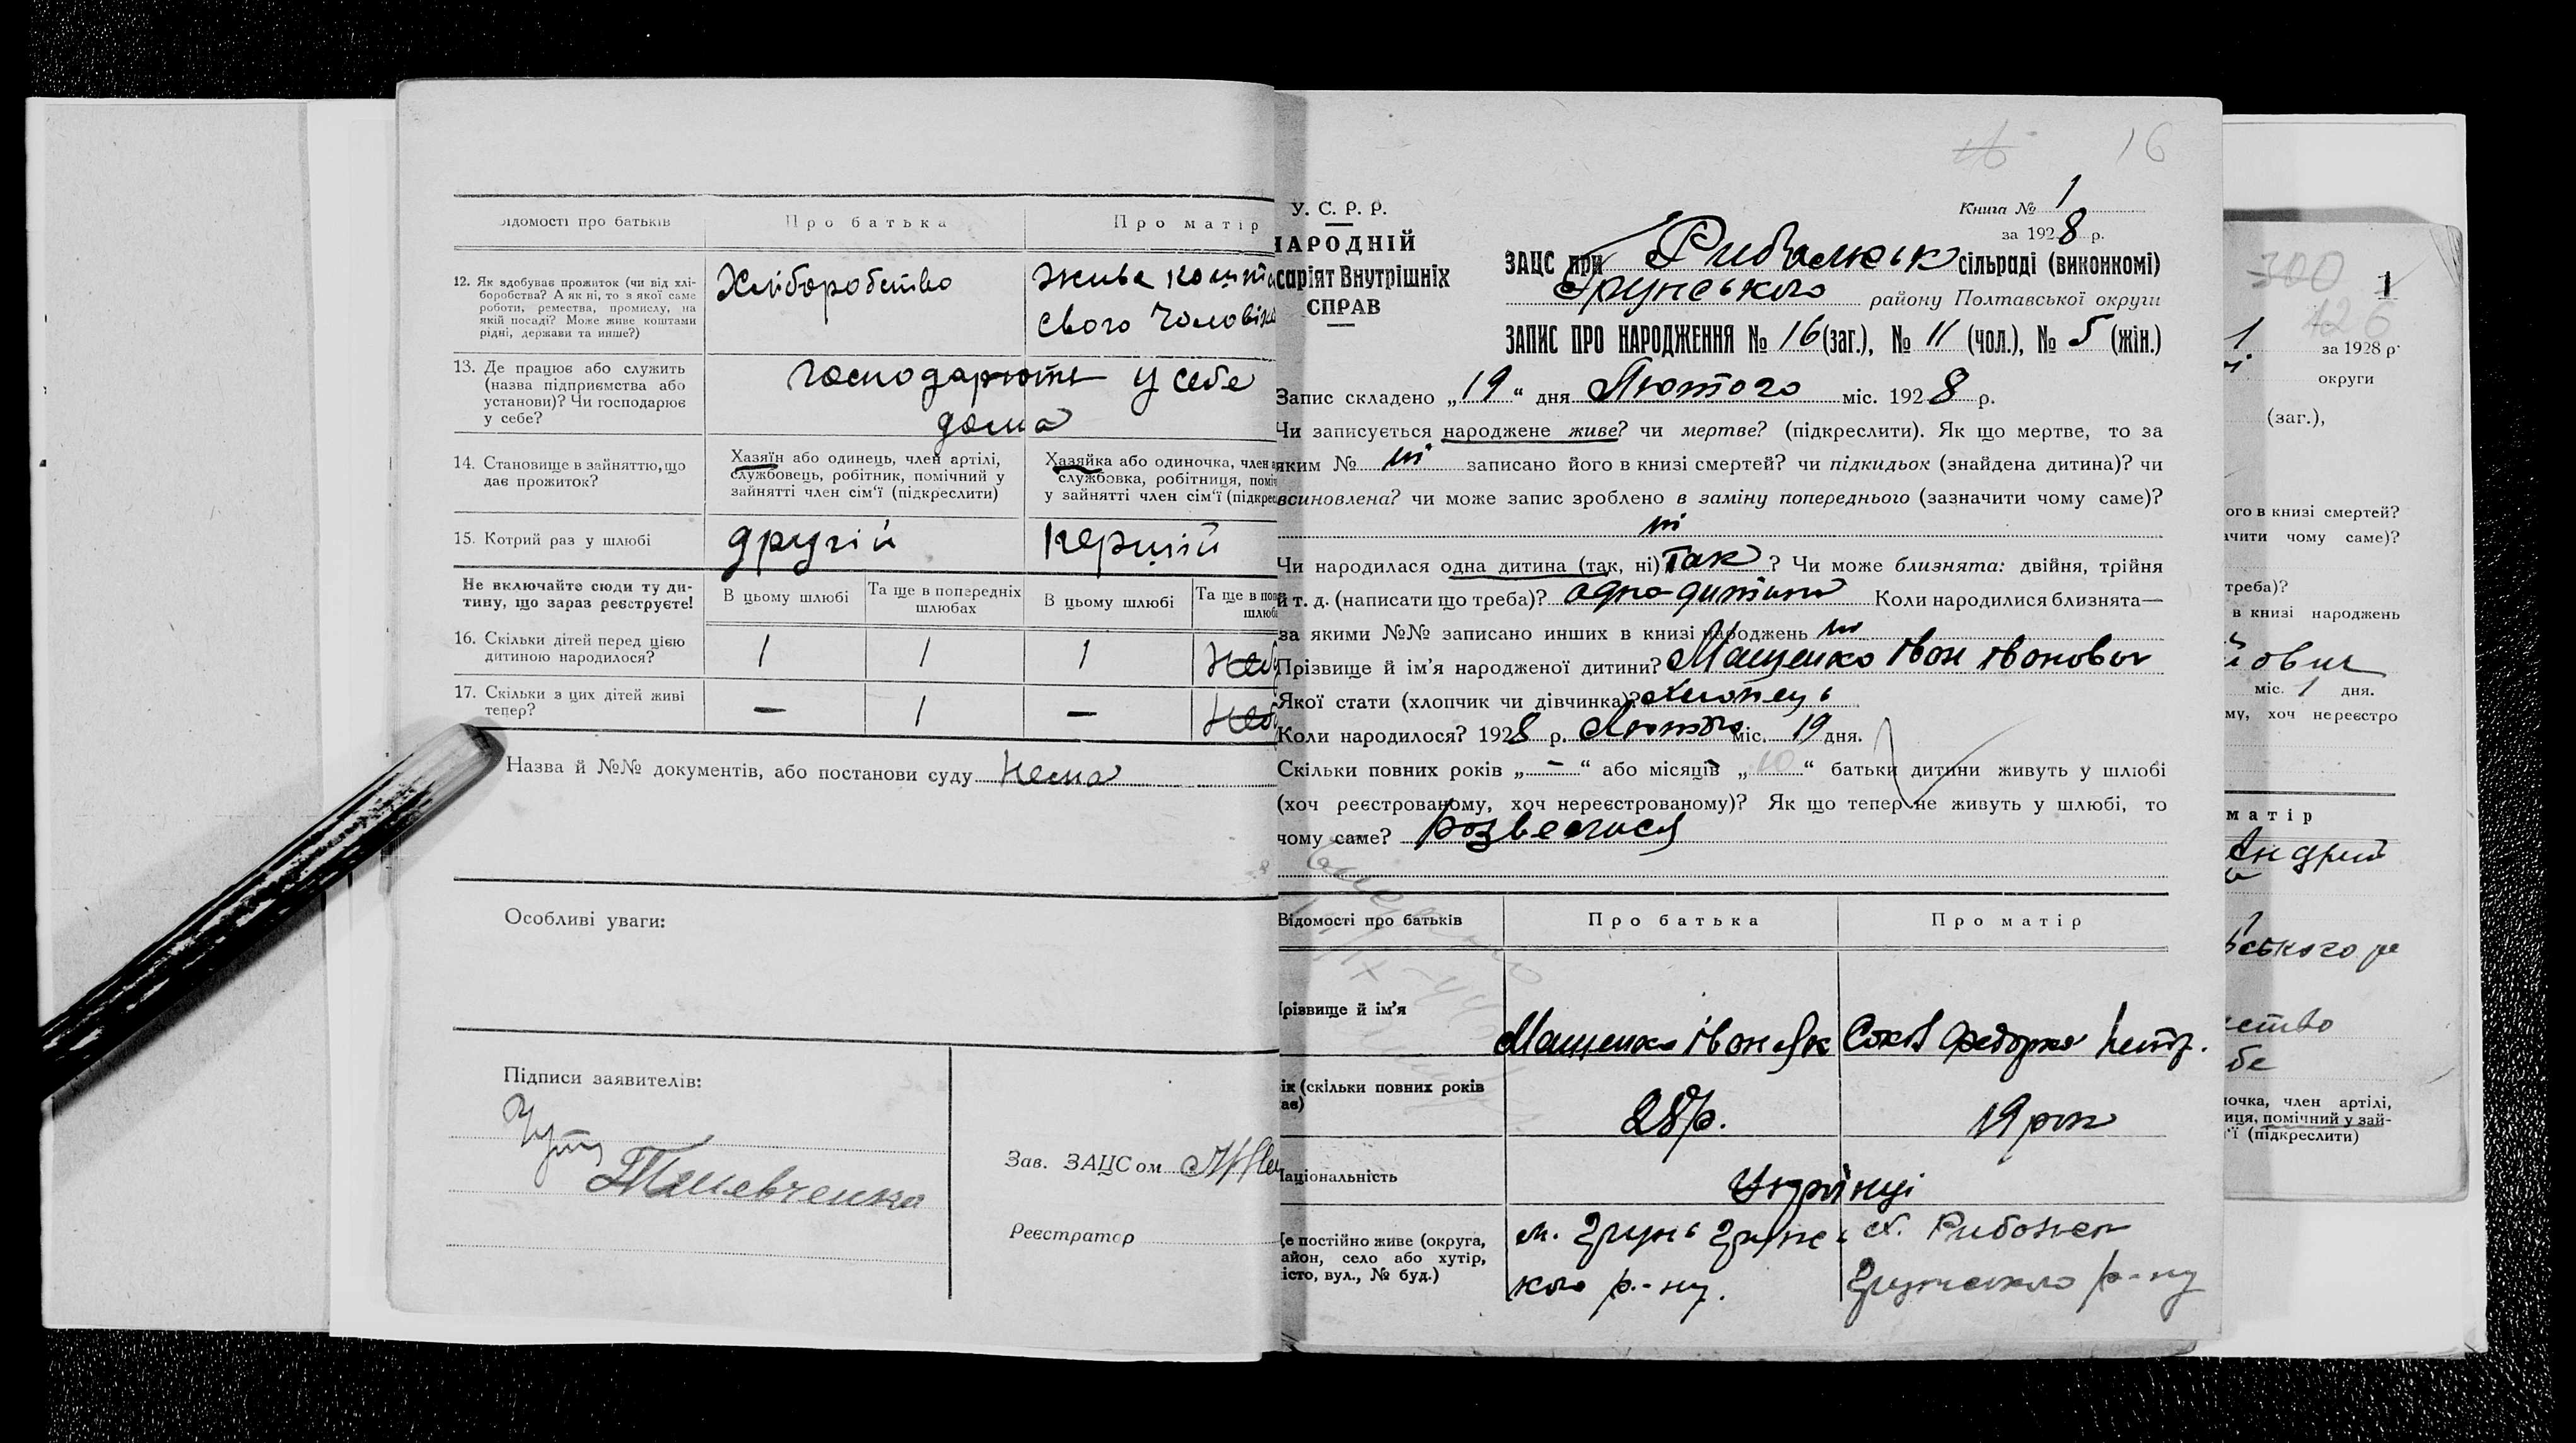 ідомості про батьків
Про батька
Про матір
12. Як здобуває прожиток (чи від хлі-
боробства? А як ні, то з якої саме
роботи, ремества, промислу, на
якій посаді? Може живе коштами
рідні, держави та инше?)
Хліборобство
живе кошта
свого чоловіка
13. Де працює або служить
(назва підприємства або
установи)? Чи господарює
у себе?
господарюють у себе
дома
14. Становище в зайняттю, що
дає прожиток?
Хазяїн або одинець, член артілі,
службовець, робітник, помічний у
зайнятті член сім'ї (підкреслити)
Хазяйка або одиночка, член а
службовка, робітниця, поміч
у зайнятті член сім'ї (підкрес
15. Котрий раз у шлюбі
другий
перший
Не включайте сюди ту ди-
тину, що зараз реєструєте!
В цьому шлюбі
Та ще в попередніх
шлюбах
В цьому шлюбі
Та ще в поп
шлюба
16. Скільки дітей перед цією
дитиною народилося?
1 1 1
17. Скільки з цих дітей живі
тепер?
— 1 —
Назва й №№ документів, або постанови суду нема
Особливі уваги:
Підписи заявителів:
Зав. ЗАЦСом
Реєстратор
16
У. С. Р. Р.
НАРОДНІЙ
саріят Внутрішніх
СПРАВ
Книга № 1
за 1928 р.
ЗАЦС при Рибальськ сільраді (виконкомі)
Грунського району Полтавської округи
ЗАПИС ПРО НАРОДЖЕННЯ № 16 (заг.), № 11 (чол.), № 5 (жін.)
Запис складено „19“ дня Лютого міс. 1928 р.
Чи записується народжене живе? чи мертве? (підкреслити). Як що мертве, то за
яким № ні записано його в книзі смертей? чи підкидьок (знайдена дитина)? чи
всиновлена? чи може запис зроблено в заміну попереднього (зазначити чому саме)?
ні
Чи народилася одна дитина (так, ні) так? Чи може близнята: двійня, трійня
й т. д. (написати що треба)? одна дитина Коли народилися близнята—
за якими №№ записано инших в книзі народжень ні
Прізвище й ім'я народженої дитини? Мащенко Іван Іванович
Якої стати (хлопчик чи дівчинка)? хлопець
Коли народилося? 1928 р. Лютого міс. 19 дня.
Скільки повних років „—“ або місяців „10“ батьки дитини живуть у шлюбі
(хоч реєстрованому, хоч нереєстрованому)? Як що тепер не живуть у шлюбі, то
чому саме? розвелися
Відомості про батьків
Про батька
Про матір
Прізвище й ім'я
Мащенко Іван Як
Федорка Петр.
ік (скільки повних років
ає)
28 р.
19 рок
Національність
Українці
е постійно живе (округа,
айон, село або хутір,
істо, вул., № буд.)
м. Грунь Грунс
кого р-ну.
Грунського р-ну
300
1
126
1
за 1928 р.
округи
(заг.),
ого в книзі смертей?
ачити чому саме)?
треба)?
в книзі народжень
ович
міс. 1 дня.
му, хоч нереєстро
матір
Андрий
ського р
ство
бе
ночка, член артілі,
иця, помічний у зай-
'ї (підкреслити)